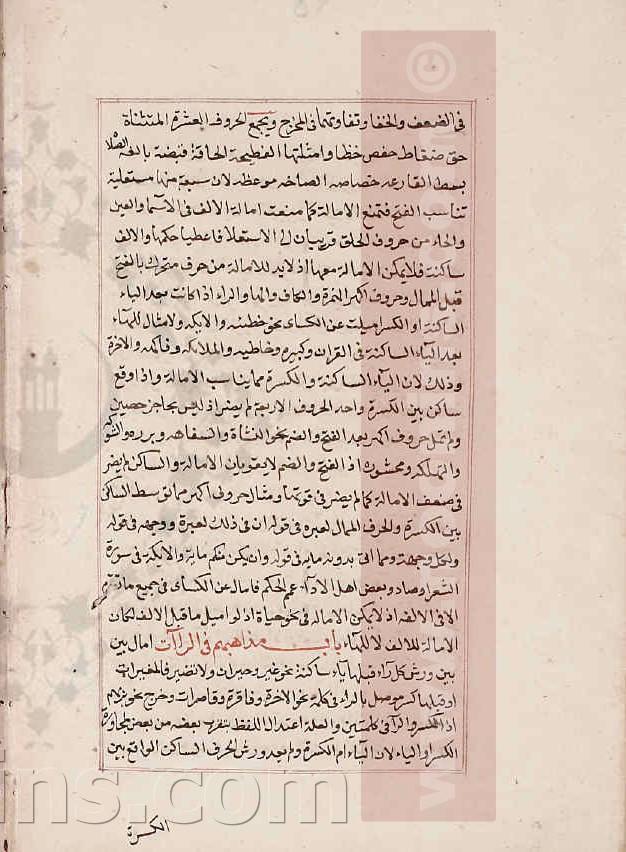 في الضعف والخفا وتفاوتهما في المخرج ويجمع الحروف العشرة المستثناة
حق ضغاط عص خظا وامثلتها النطيحة الحاقة قبضة بالغة الصلاة
بسطة القارعة خصاصه الصاخه موعظه لان سبعة منها مستعلية
تناسب الفتح فتمنع الامالة كما منعت امالة الالف في الاسما والعين
والحاء من حروف الحلق قريبان الى الاستعلا فاعطيا حكمها والالف
ساكنة فلا يمكن الامالة معها اذ لابد للامالة من حرف متحرك بالفتح
قبل الممال وحروف اكهر الهمزة والكاف والهاء والراء اذا كانت بعد الياء
الساكنة او الكسر اميلت عن الكساى نحو خطيئه والايكه ولا مثال للهاء
بعد الياء الساكنة في القران وكبيره وخاطيه والملائكه وفاكهه والاخرة
وذلك لان الياء الساكنة والكسرة مما يناسب الامالة واذا وقع
ساكن بين الكسرة واحد الحروف الاربعة لم يضر اذ ليس بحاجز حصين
ولم تمل حروف اكهر بعد الفتح والضم نحو النشاة والسفاهه وبرره والشوكه
والتهلكه ومحشورة اذ الفتح والضم لا يقويان الامالة والساكن لم يضر
في ضعف الامالة كما لم يضر في قوتها ومثال حروف اكهر مما توسط الساكن
بين الكسرة والحرف الممال لعبره في قوله ان في ذلك لعبرة ووجهه في قوله
ولكل وجهة ومما اتى بدونه مايه في قوله وان يكن منكم ماية والايكة في سورة
الشعرا وصاد وبعض اهل الاداء عمم الحكم فاماله عن الكساى في جميع ما تقدم
الا في الالف اذ لا يمكن الاماله في نحو حياة اذ لو اميل ما قبل الالف لكان
الامالة للالف لا للهاء باب مذاهبهم في الراآت امال بين
بين ورش كل راء قبلها ياء ساكنة نحو غير وحيران ولا تضير فالمغيرات
او قبلها كسر موصل بالراء في كلمة نحو الاخرة وفاقرة وقاصرات وخرج نحو بربهم
اذ الكسر والرا في كلمتين والعلة اعتدال اللفظ بتقريب بعضه من بعض لمجاورة
الكسر او الياء لان الياء ام الكسرة ولم يعد ورش الحرف الساكن الواقع بين
الكسرة
ns.com